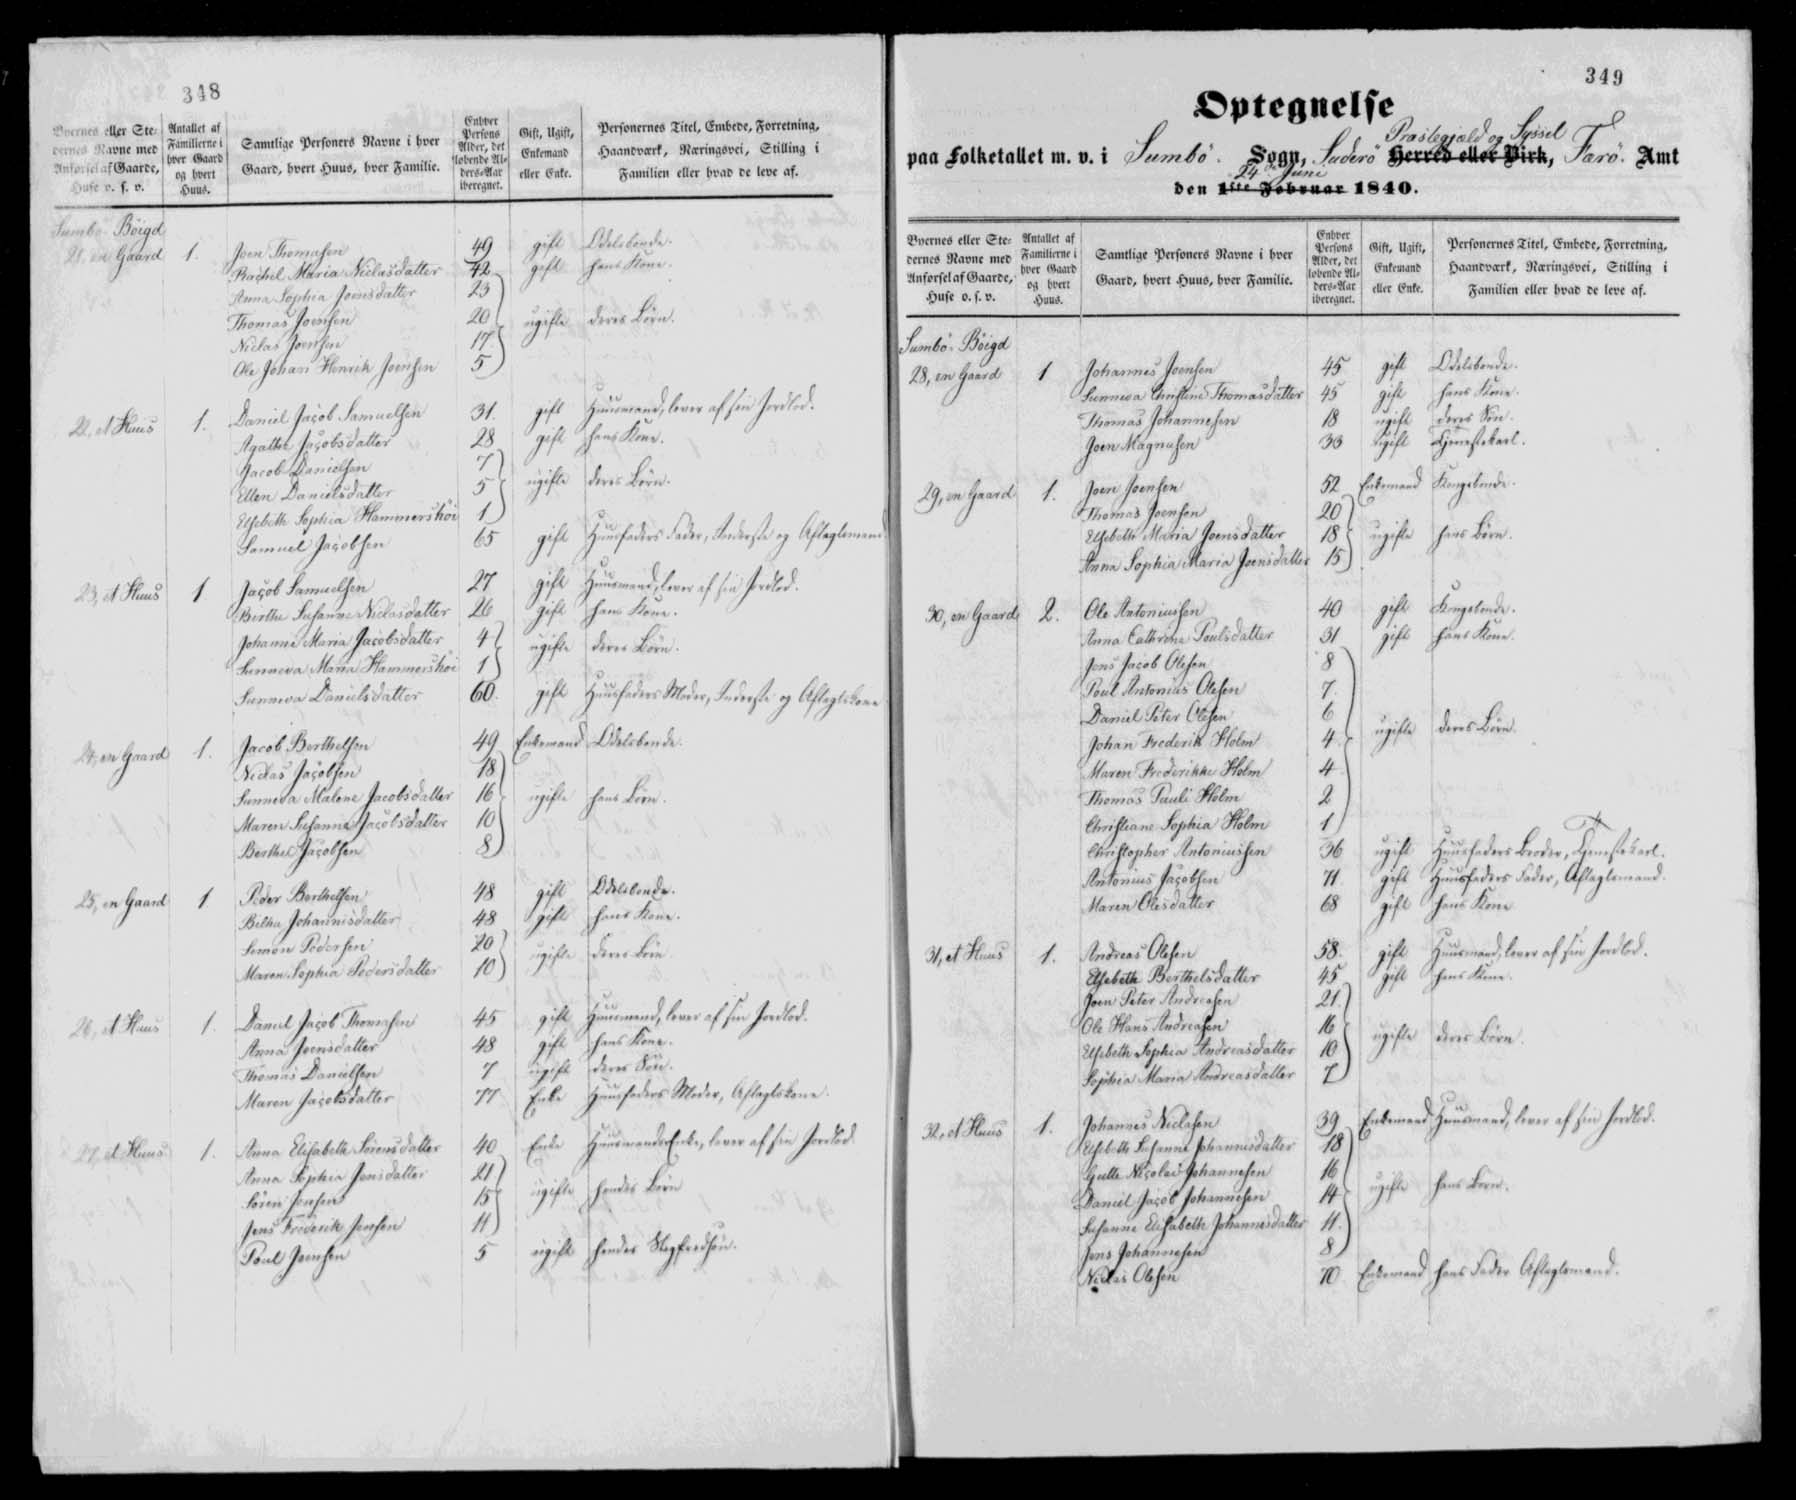 348
Byernes eller Ste- dernes Navne med Anførsel af Gaarde, Huse o. s. v. | Antallet af Familierne i hver Gaard og hvert Huus. | Samtlige Personers Navne i hver Gaard, hvert Huus, hver Familie. | Enhver Persons Alder, det løbende Al- ders-Aar iberegnet. | Gift, Ugift, Enkemand eller Enke. | Personernes Titel, Embede, Forretning, Haandværk, Næringsvei, Stilling i Familien eller hvad de leve af.
Sumbö Böigd
21, en Gaard 1. Joen Thomasen 49 gift Odelsbonde.
Rachel Maria Niclasdatter 42 gift hans Kone.
Anna Sophia Joensdatter 23
Thomas Joensen 20 ugifte deres Börn.
Niclas Joensen 17
Ole Johan Henrik Joensen 5
22, et Huus 1. Daniel Jacob Samuelsen 31. gift Huusmand, lever af sin Jordlod.
Agathe Jacobsdatter 28 gift hans Kone.
Jacob Danielsen 7
Ellen Danielsdatter 5 ugifte deres Börn.
Elsebeth Sophia Hammershöi 1
Samuel Jacobsen 65 gift Huusfaders Fader, Inderste og Aftagtsmand
23, et Huus 1 Jacob Samuelsen 27 gift Huusmand, lever af sin Jordlod.
Birthe Susanne Niclasdatter 26 gift hans Kone.
Johanne Maria Jacobsdatter 4 ugifte deres Börn.
Sunneva Maria Hammershöi 1
Sunneva Danielsdatter 60. gift Huusfaders Moder, Inderste og Aftagtskone
24, en Gaard 1. Jacob Berthelsen 49 Enkemand Odelsbonde.
Niclas Jacobsen 18
Sunneva Malene Jacobsdatter 16 ugifte hans Börn.
Maren Susanne Jacobsdatter 10
Berthel Jacobsen 8
25, en Gaard 1 Peder Berthelsen 48 gift Odelsbonde.
Billa Johannisdatter 48 gift hans Kone.
Simon Pedersen 20 ugifte deres Börn
Maren Sophia Pedersdatter 10
26, et Huus 1. Daniel Jacob Thomasen 45 gift Huusmand, lever af sin Jordlod.
Anna Joensdatter 48 gift hans Kone.
Thomas Danielsen 7 ugift deres Sön.
Maren Jacobsdatter 77 Enke Huusfaders Moder, Aftagtskone.
27, et Huus 1. Anna Elisabeth Sörensdatter 40 Enke Huusmands Enke, lever af sin Jordlod
Anna Sophia Jensdatter 21
Sören Jensen 15 ugifte hendes Börn
Jens Frederik Jensen 11
Poul Joensen 5 ugift hendes
349
Optegnelse
Præstegjæld og Syssel
paa Folketallet m. v. i Sumbö. Sogn, Suderö Herred eller Birk, Farö. Amt
24de Juni
den 1ste Februar 1840.
Byernes eller Ste- dernes Navne med Anførsel af Gaarde, Huse o. s. v. | Antallet af Familierne i hver Gaard og hvert Huus. | Samtlige Personers Navne i hver Gaard, hvert Huus, hver Familie. | Enhver Persons Alder, det løbende Al- ders-Aar iberegnet. | Gift, Ugift, Enkemand eller Enke. | Personernes Titel, Embede, Forretning, Haandværk, Næringsvei, Stilling i Familien eller hvad de leve af.
Sumbö Böigd
28, en Gaard 1 Johannes Joensen 45 gift Odelsbonde.
Sunneva Christine Thomasdatter 45 gift hans Kone.
Thomas Johannesen 18 ugift deres Sön.
Joen Magnusen 33 ugift Tjenestekarl.
29, en Gaard 1. Joen Joensen 52 Enkemand Kongsbonde.
Thomas Joensen 20
Elsebeth Maria Joensdatter 18 ugifte hans Börn.
Anna Sophia Maria Joensdatter 15
30, en Gaard 2. Ole Antoniussen 40 gift Kongsbonde.
Anna Cathrine Poulsdatter 31 gift hans Kone.
Jens Jacob Olesen 8
Poul Antonius Olesen 7.
Daniel Peter Olesen 6
Johan Frederik Holm 4. ugifte deres Börn.
Maren Frederikke Holm 4
Thomas Pauli Holm 2
Christiane Sophia Holm 1
Christopher Antoniussen 36 ugift Huusfaders Broder, Tjenestekarl.
Antonius Jacobsen 71. gift Huusfaders Fader, Aftagtsmand.
Maren Olesdatter 68 gift hans Kone
31, et Huus 1. Andreas Olesen 58. gift Huusmand, lever af sin Jordlod.
Elsebeth Berthelsdatter 45 gift hans Kone.
Joen Peter Andreasen 21.
Ole Hans Andreasen 16 ugifte deres Börn.
Elsebeth Sophia Andreasdatter 10
Sophia Maria Andreasdatter 7
32, et Huus 1. Johannes Niclasen 39 Enkemand Huusmand, lever af sin Jordlod.
Elsebeth Susanne Johannisdatter 18
Gutte Nicolai Johannesen 16
Daniel Jacob Johannesen 14 ugifte hans Börn.
Susanne Elisabeth Johannesdatter 11.
Jens Johannesen 8
Niclas Olesen 70 Enkemand hans Fader Aftagtsmand.